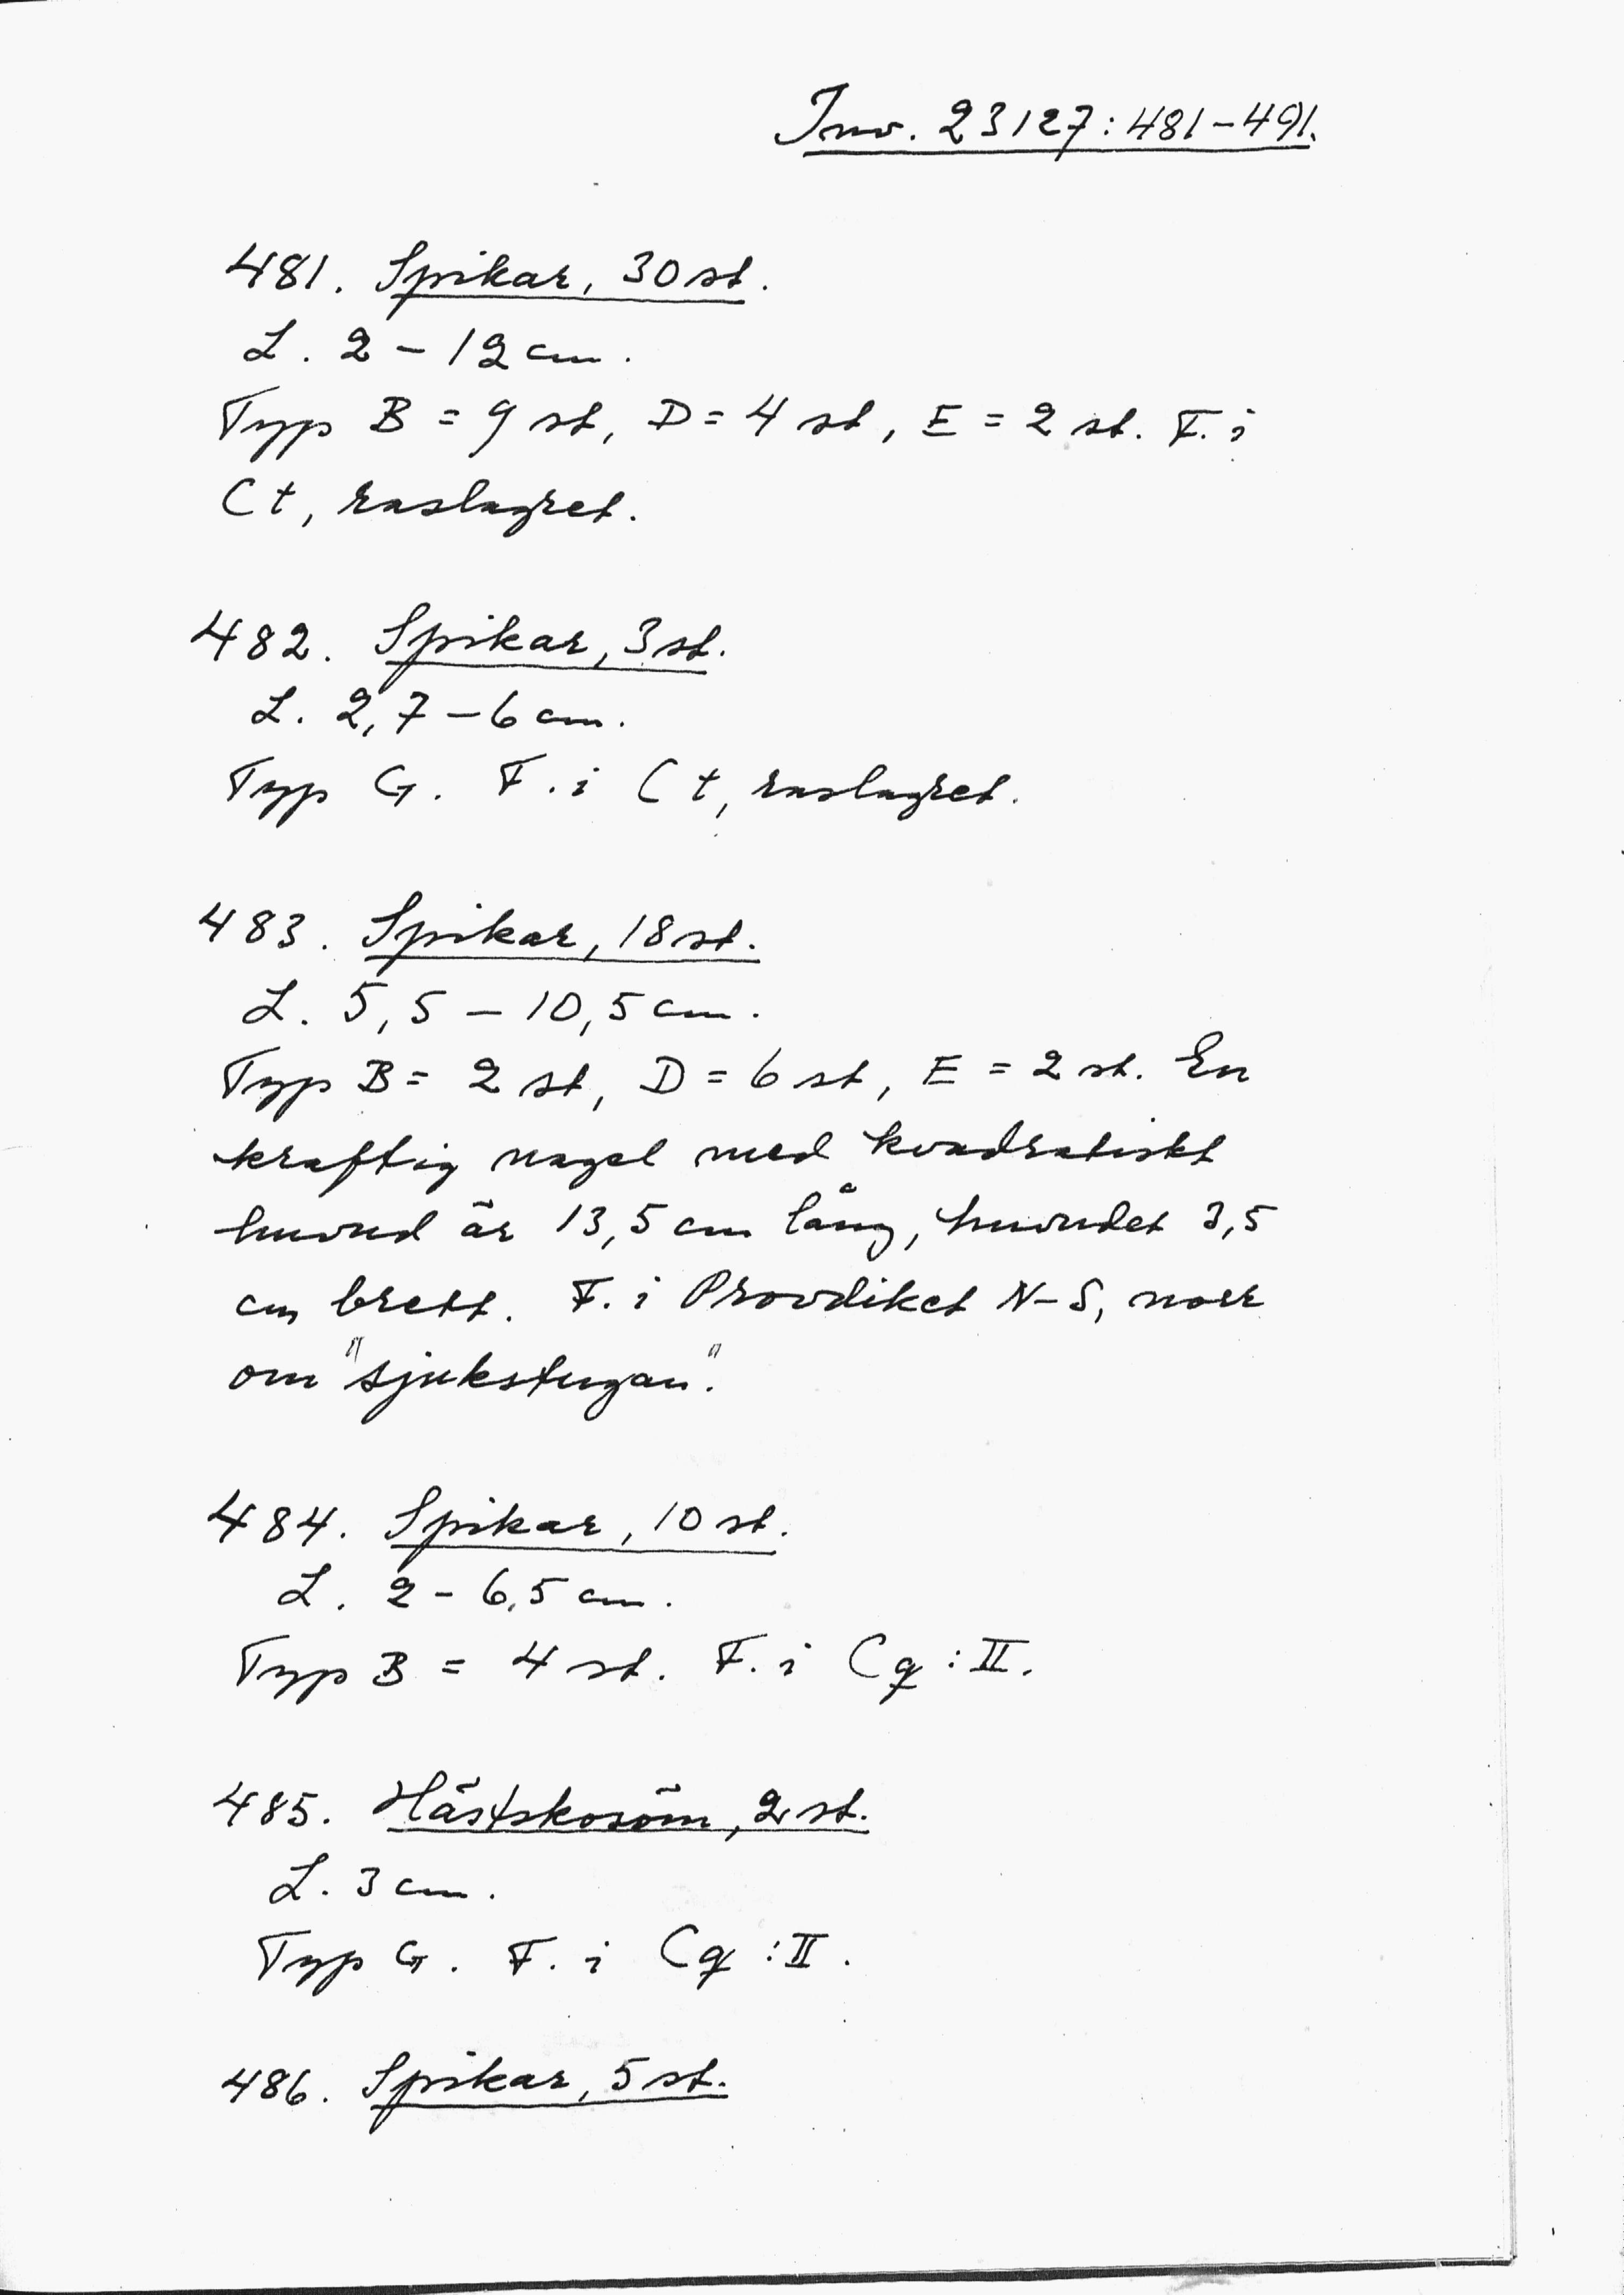 Inv. 23127:481-491.
481. Spikar, 30 st.
L. 2 - 12 cm.
Typ B = 9 st, D = 4 st, E = 2 st. F. i
Ct, raslagret.
482. Spikar, 3 st.
L. 2,7 - 6 cm.
Typ G. F. i Ct, raslagret.
483. Spikar, 18 st.
L. 5,5 - 10,5 cm.
Typ B = 2 st, D = 6 st, E = 2 st. En
kraftig nagel med kvadratiskt
huvud är 13,5 cm lång, huvudet 3,5
cm brett. F. i Provdiket N-S, norr
om "sjukstugan".
484. Spikar, 10 st.
L. 2 - 6,5 cm.
Typ B = 4 st. F. i Cq:II.
485. Hästskosöm, 2 st.
L. 3 cm.
Typ G. F. i Cq:II.
486. Spikar, 5 st.